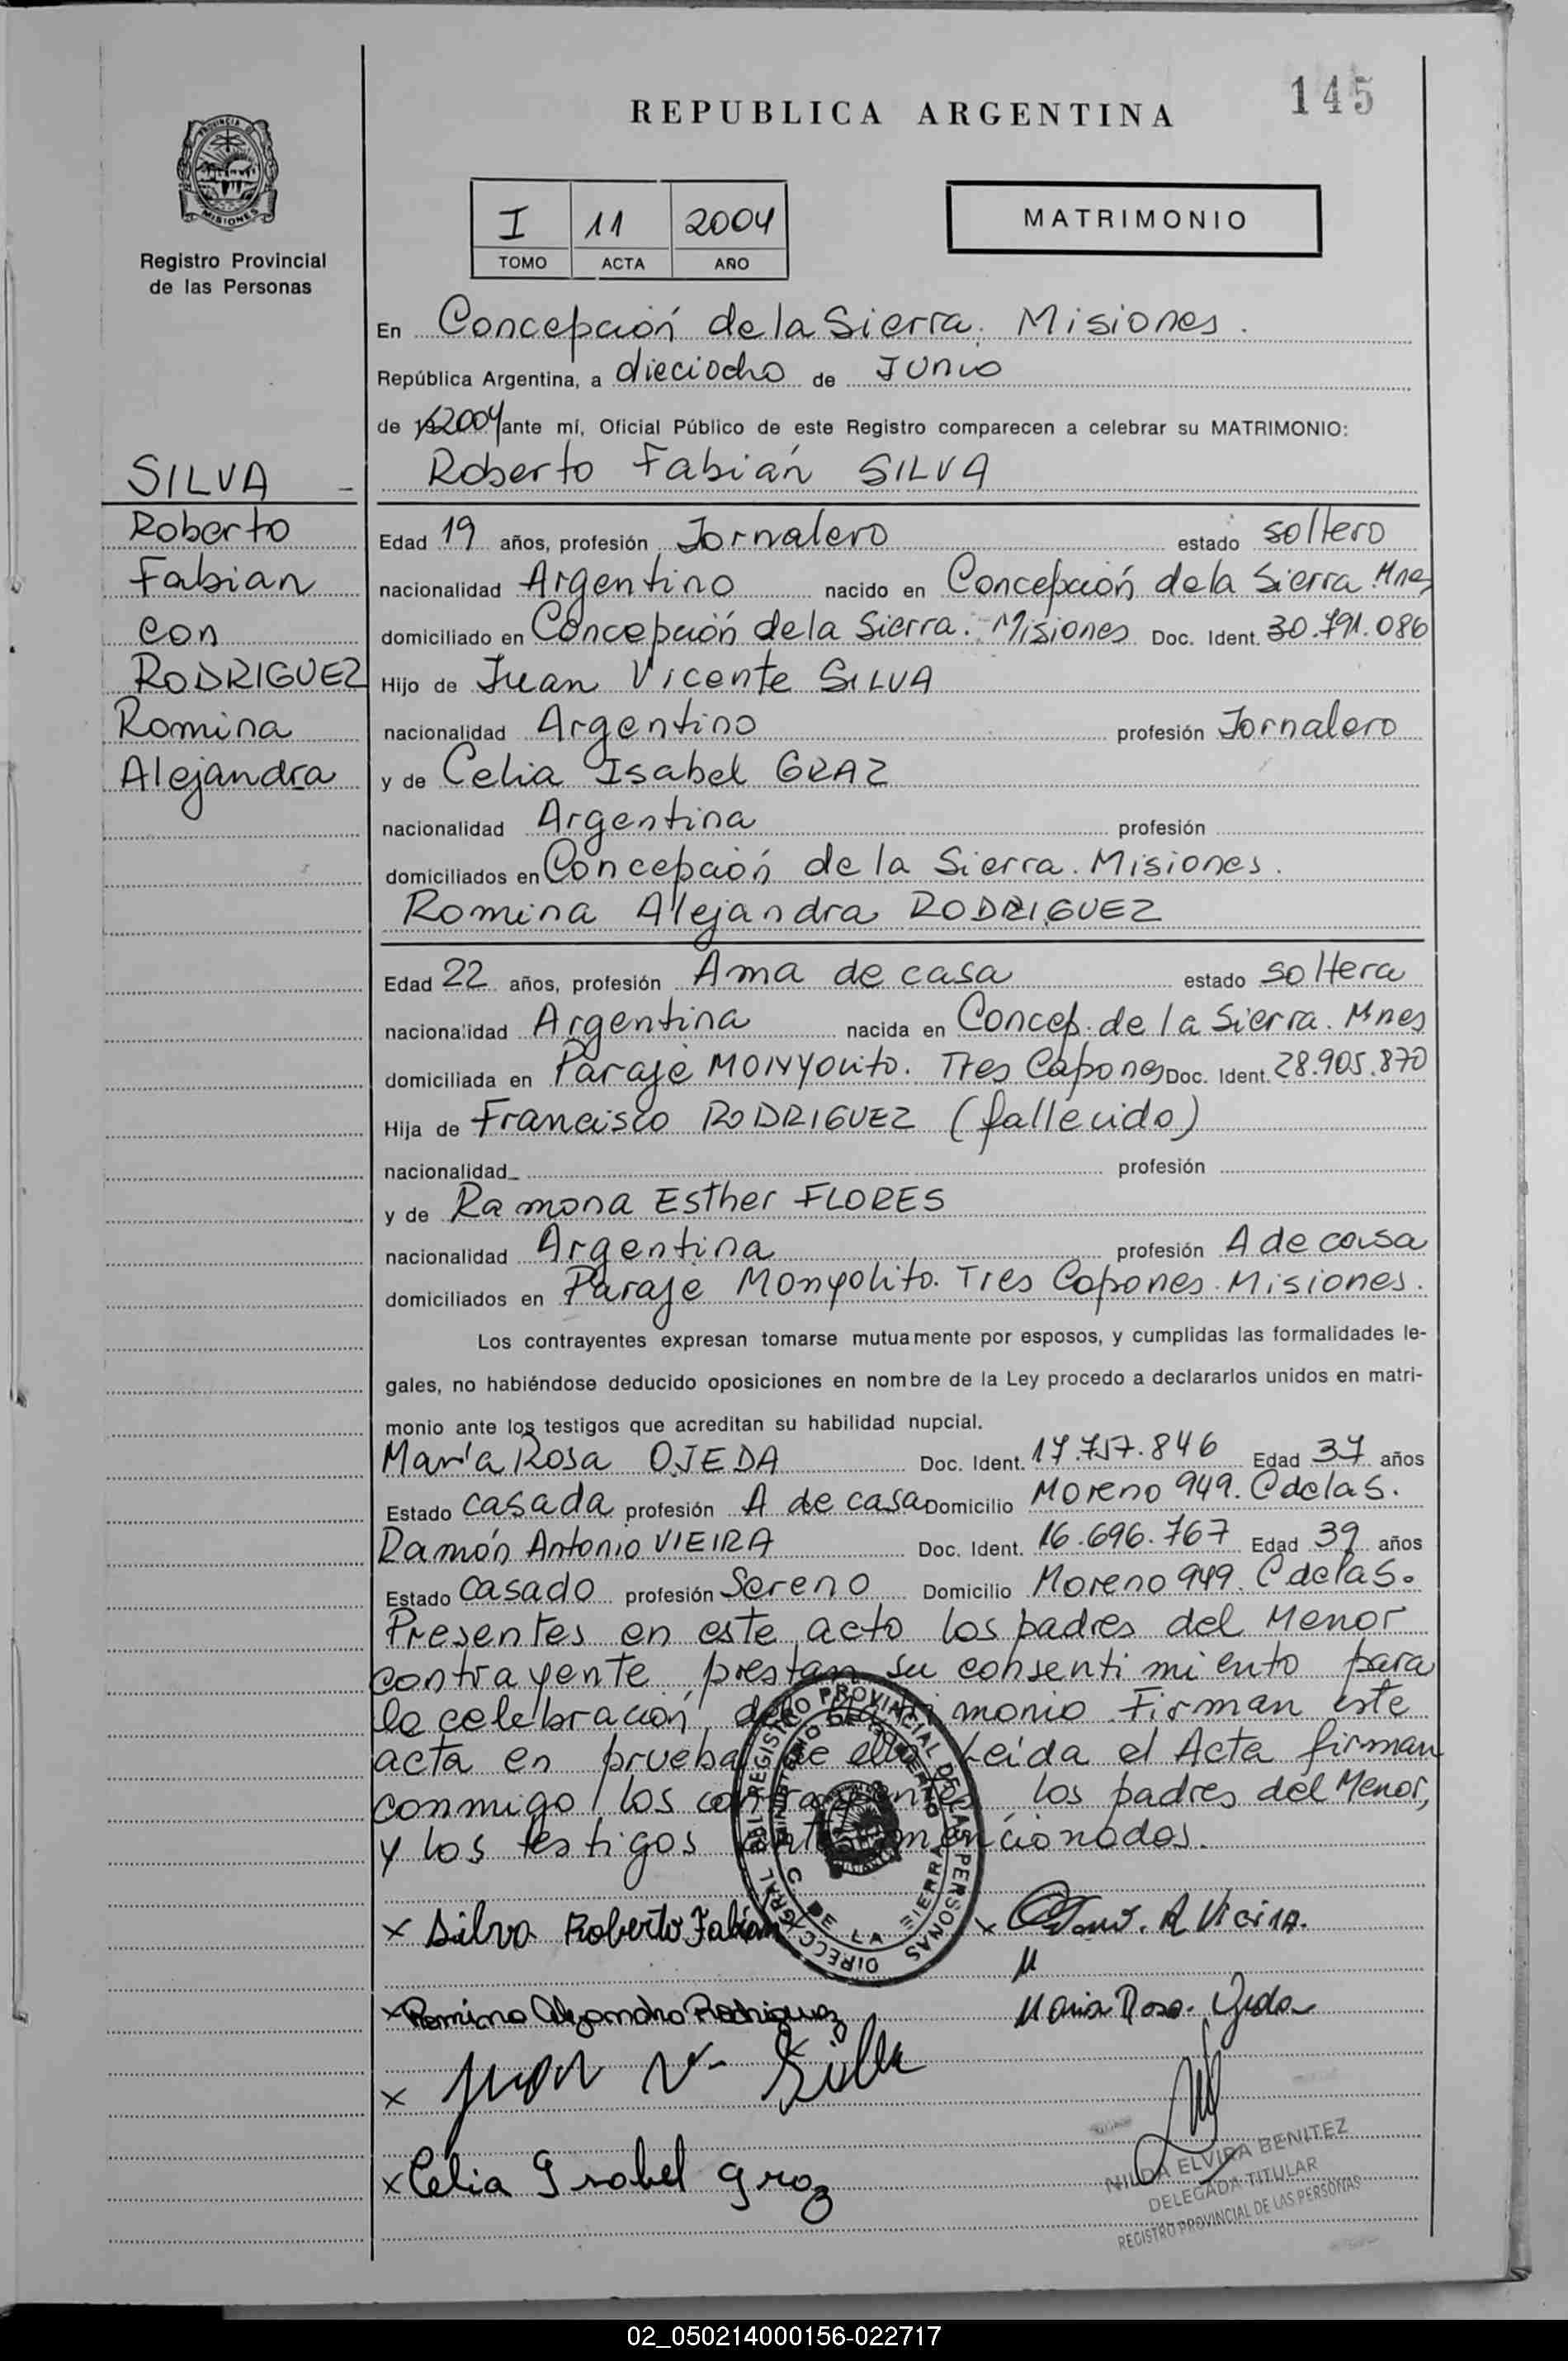 145
REPUBLICA ARGENTINA
PROVINCIA DE
MISIONES
Registro Provincial
de las Personas
I 11 2004
TOMO ACTA AÑO
MATRIMONIO
En Concepción de la Sierra. Misiones.
República Argentina, a dieciocho de Junio
de 2004 ante mí, Oficial Público de este Registro comparecen a celebrar su MATRIMONIO:
Roberto Fabián SILVA
SILVA -
Roberto
Fabian
con
RODRIGUEZ
Romina
Alejandra
Edad 19 años, profesión Jornalero estado soltero
nacionalidad Argentino nacido en Concepción de la Sierra. Mnes
domiciliado en Concepción de la Sierra. Misiones Doc. Ident. 30.791.086
Hijo de Juan Vicente SILVA
nacionalidad Argentino profesión Jornalero
y de Celia Isabel GRAZ
nacionalidad Argentina profesión
domiciliados en Concepción de la Sierra. Misiones.
Romina Alejandra RODRIGUEZ
Edad 22 años, profesión Ama de casa estado soltera
nacionalidad Argentina nacida en Concep. de la Sierra. Mnes
domiciliada en Paraje Monyolito. Tres Capones Doc. Ident. 28.905.870
Hija de Francisco RODRIGUEZ (fallecido)
nacionalidad profesión
y de Ramona Esther FLORES
nacionalidad Argentina profesión A de casa
domiciliados en Paraje Monyolito. Tres Capones. Misiones.
Los contrayentes expresan tomarse mutuamente por esposos, y cumplidas las formalidades le-
gales, no habiéndose deducido oposiciones en nombre de la Ley procedo a declararlos unidos en matri-
monio ante los testigos que acreditan su habilidad nupcial.
María Rosa OJEDA Doc. Ident. 17.757.846 Edad 37 años
Estado casada profesión A de casa Domicilio Moreno 949. C de la S.
Ramón Antonio VIEIRA Doc. Ident. 16.696.767 Edad 39 años
Estado casado profesión Sereno Domicilio Moreno 949. C de la S.
Presentes en este acto los padres del Menor
contrayente, prestan su consentimiento para
la celebración del Matrimonio. Firman este
acta en prueba de ello. Leída el Acta firman
conmigo los contrayentes los padres del Menor,
y los testigos antes mencionados.
DIRECC. GRAL. DEL REGISTRO PROVINCIAL DE LAS PERSONAS
MINISTERIO DE GOBIERNO
C. DE LA SIERRA
x Silva Roberto Fabian
x A Vieira.
x Romina Alejandra Rodriguez
Maria Rosa Ojeda
x Juan V. Silva
x Celia Isabel Graz
NILDA ELVIRA BENITEZ
DELEGADA TITULAR
REGISTRO PROVINCIAL DE LAS PERSONAS
02_050214000156-022717